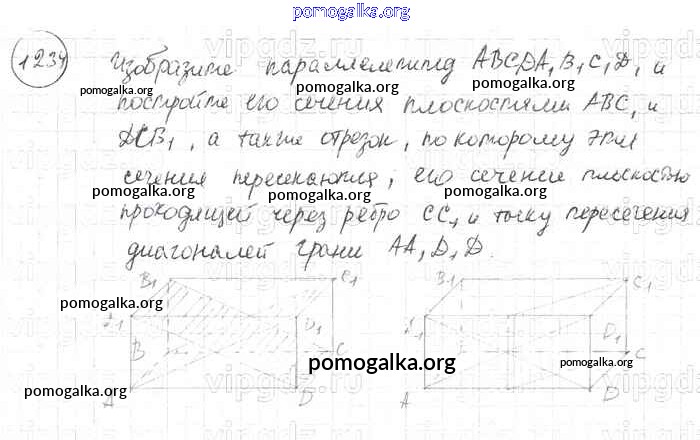 pomogalka.org
1234 Изобразите параллелепипед ABCDA₁B₁C₁D₁ и
постройте его сечения плоскостями ABC₁ и
DCB₁, а также отрезок, по которому эти
сечения пересекаются; его сечение плоскостью
проходящей через ребро CC₁ и точку пересечения
диагоналей грани AA₁D₁D.
pomogalka.org pomogalka.org
pomogalka.org pomogalka.org
pomogalka.org pomogalka.org
B₁ C₁ B₁ C₁
pomogalka.org
A₁ D₁ A₁ D₁
B C C
pomogalka.org
pomogalka.org
A D A D